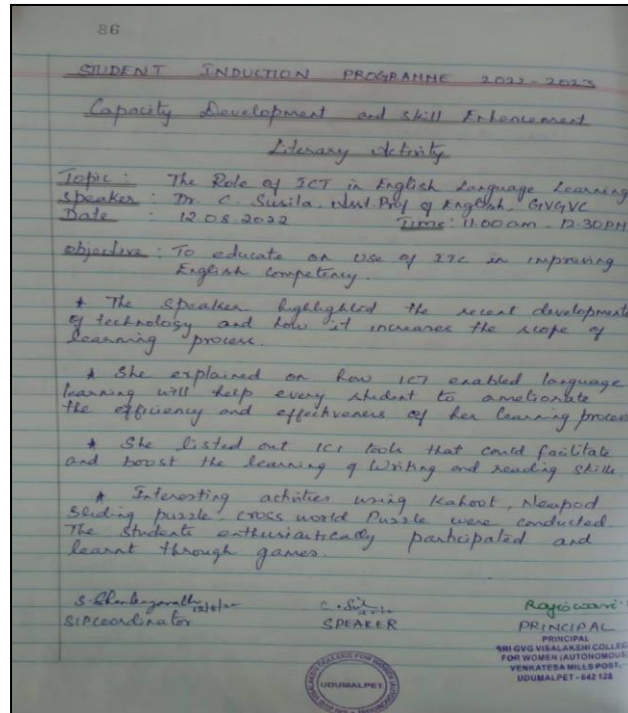 86
STUDENT INDUCTION PROGRAMME 2022-2023
Capacity Development and Skill Enhancement
Literary Activity
Topic : The Role of ICT in English Language Learning
Speaker : Dr. C. Susila, Asst Prof of English, GVGVC
Date : 12.08.2022 Time: 11.00am - 12.30PM
Objective : To educate on use of ITC in improving
English Competency.
* The speaker highlighted the recent developments
of technology and how it increases the scope of
learning process.
* She explained on how ICT enabled language
learning will help every student to ameliorate
the efficiency and effectiveness of her learning process
* She listed out ICT tools that could facilitate
and boost the learning of Writing and reading skills.
* Interesting activities using Kahoot, Nearpod
Sliding puzzle, cross world Puzzle were conducted
The students enthusiastically participated and
learnt through games.
SIPCoordinator SPEAKER PRINCIPAL
PRINCIPAL
SRI GVG VISALAKSHI COLLEGE
FOR WOMEN (AUTONOMOUS)
VENKATESA MILLS POST,
UDUMALPET - 642 128
UDUMALPET